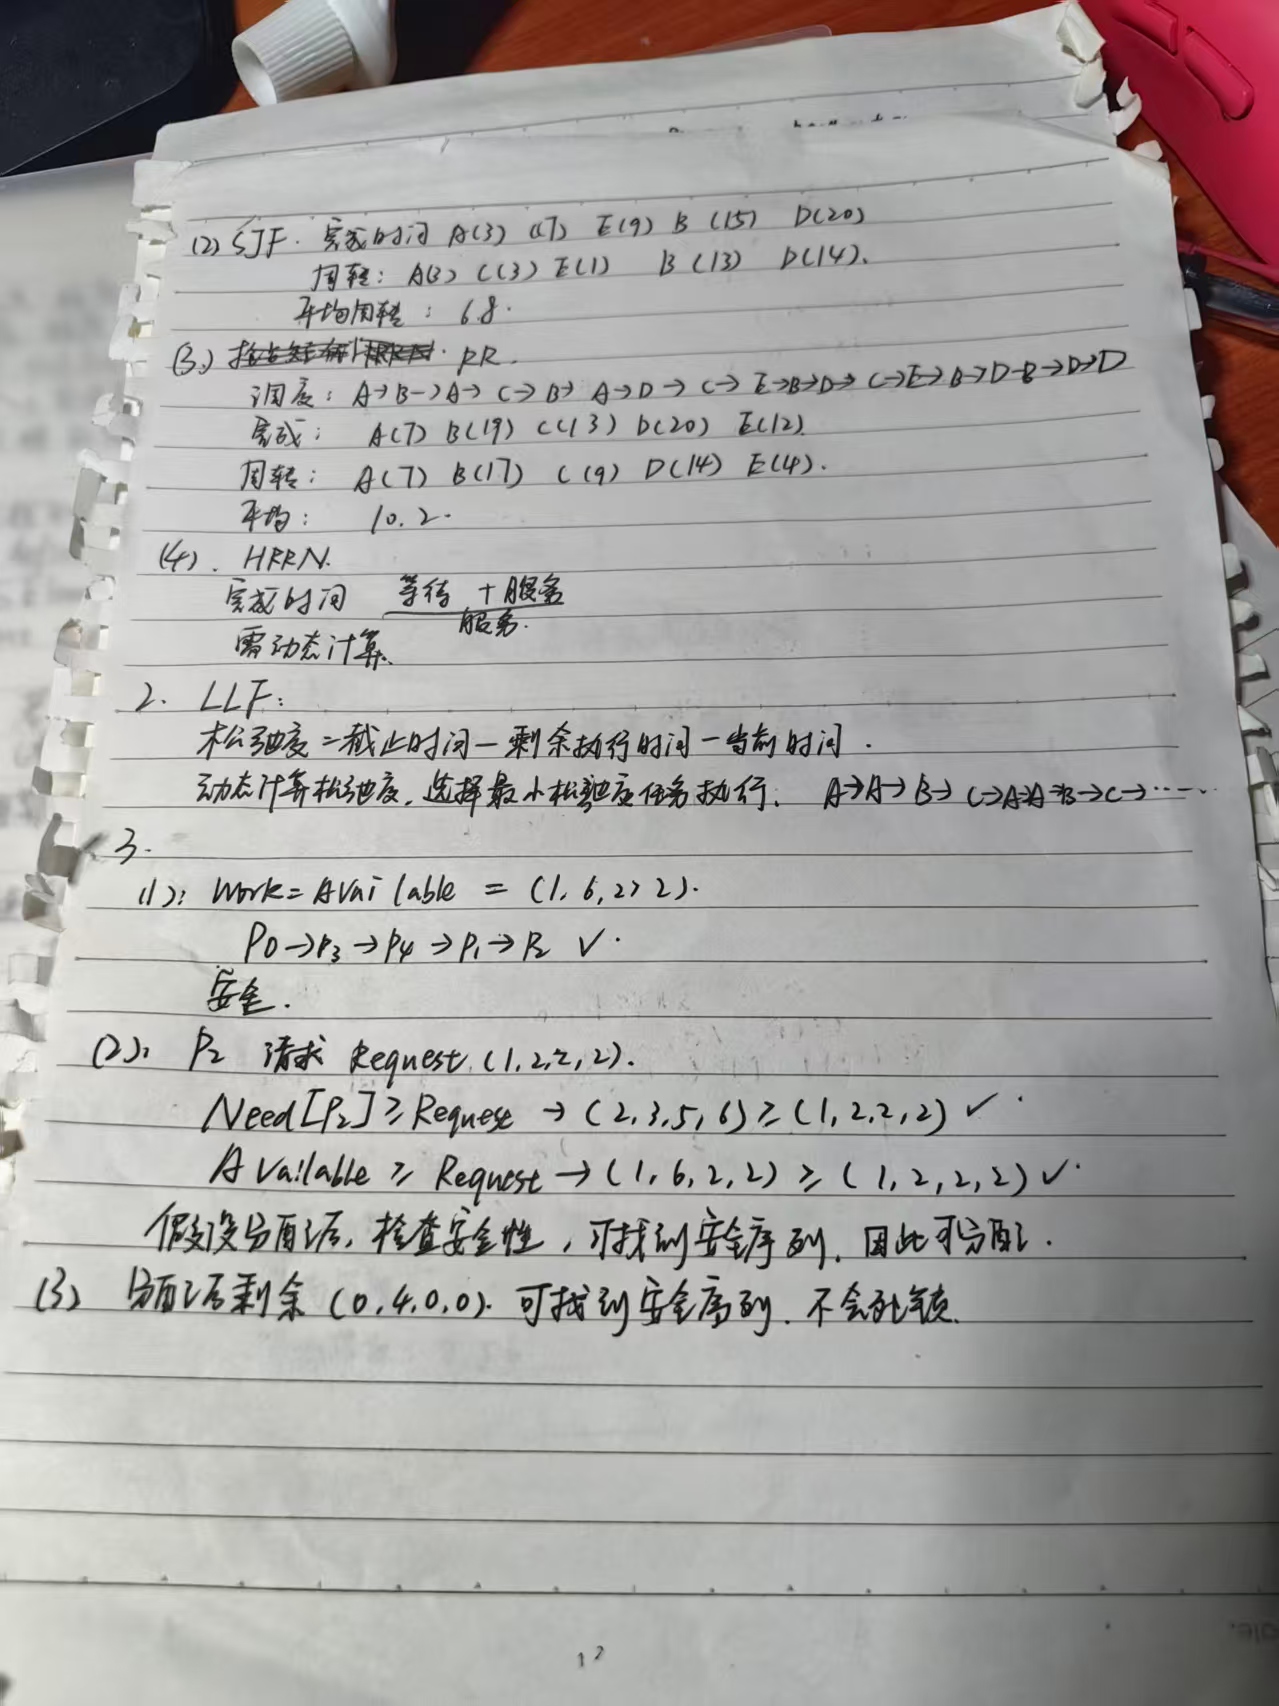 (2) SJF. 完成时间 A(3) C(7) E(9) B(15) D(20)
周转: A(3) C(3) E(1) B(13) D(14).
平均周转: 6.8.
(3) RR.
调度: A→B→A→C→B→A→D→C→E→B→D→C→E→B→D→B→D→D
完成: A(7) B(19) C(13) D(20) E(12)
周转: A(7) B(17) C(9) D(14) E(4).
平均: 10.2.
(4). HRRN.
完成时间 等待+服务
服务.
需动态计算.
2. LLF:
松弛度=截止时间-剩余执行时间-当前时间.
动态计算松弛度,选择最小松弛度任务执行. A→A→B→C→A→A→B→C→……
3.
(1): Work=Available=(1,6,2,2).
P0→P3→P4→P1→P2 ✓.
安全.
(2): P2 请求 Request(1,2,2,2).
Need[P2]≥Request→(2,3,5,6)≥(1,2,2,2)✓.
Available≥Request→(1,6,2,2)≥(1,2,2,2)✓.
假设分配后,检查安全性,可找到安全序列,因此可分配.
(3) 分配后剩余(0,4,0,0).可找到安全序列.不会死锁.
12